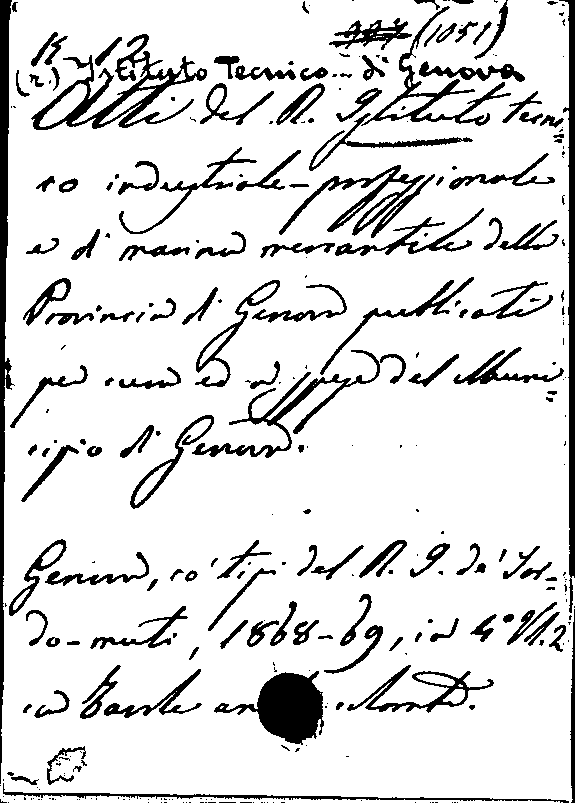 K 12 997 (1051)
(2) Istituto Tecnico... di Genova
Atti del R. Istituto tecni=
co industriale-professionale
e di marina mercantile della
Provincia di Genova pubblicati
per cura ed a spese del Muni=
cipio di Genova.
Genova, co' tipi del R. I. de' Sor=
do-muti, 1868-69, in 4° Vl. 2
con Tavole